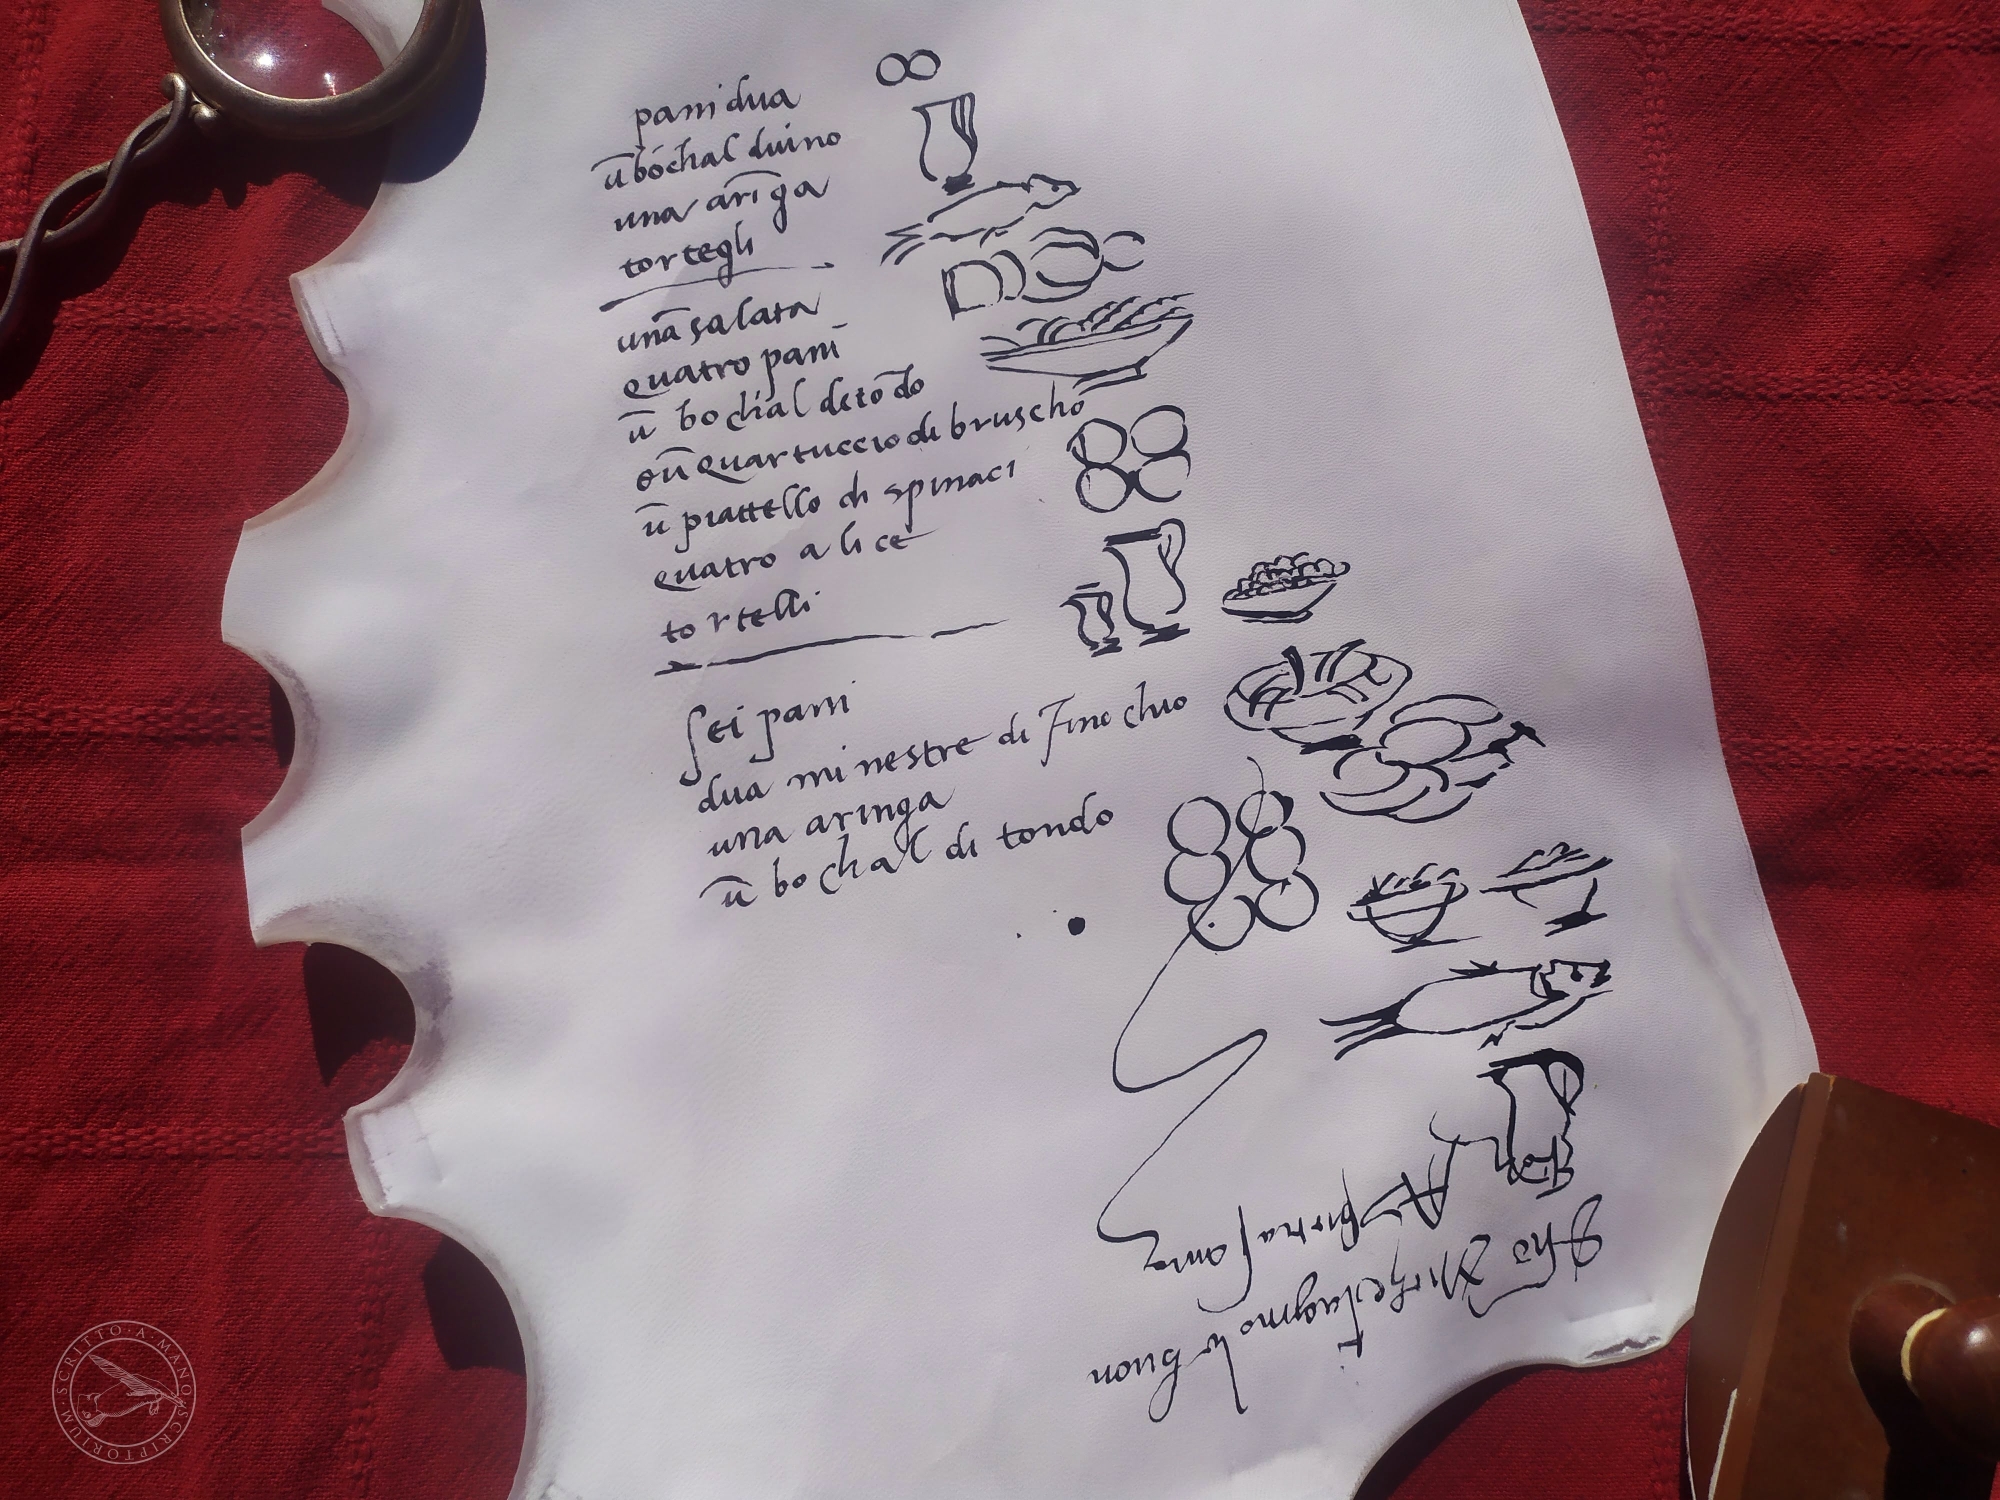 pani dua
ū bochal duino
una arīga
tortegli
una salata
quatro pani
ū bochal detōdo
oū quartuccio di bruscho
ū piattello di spinaci
quatro alice
tortelli
sei pani
dua minestre di finochio
una aringa
ū bochal di tondo
SCRITTO·A·MANO·SCRIPTORIUM·M